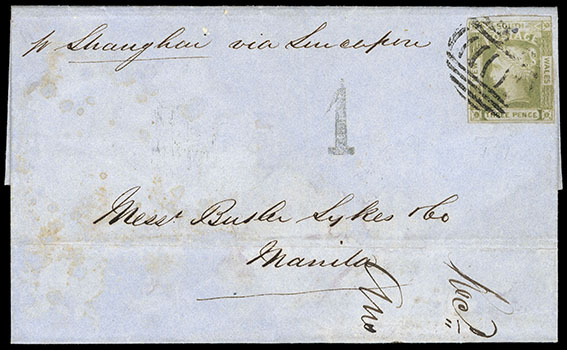 pr Shanghai via Sincapore
SOUTH
WALES
THREE PENCE
1
Messrs Butler Sykes & Co
Manila